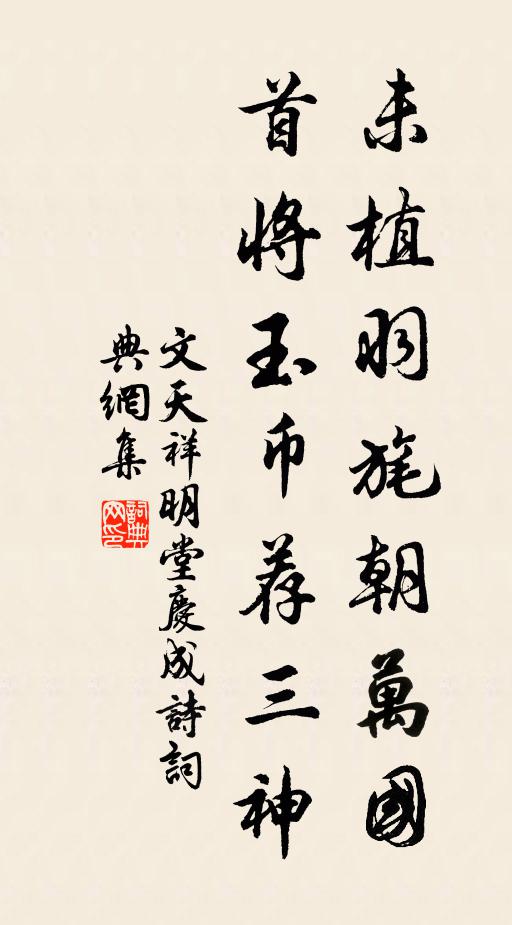 未植羽旄朝萬國
首將玉币荐三神
文天祥明堂慶成詩詞
典網集
詞典
网印